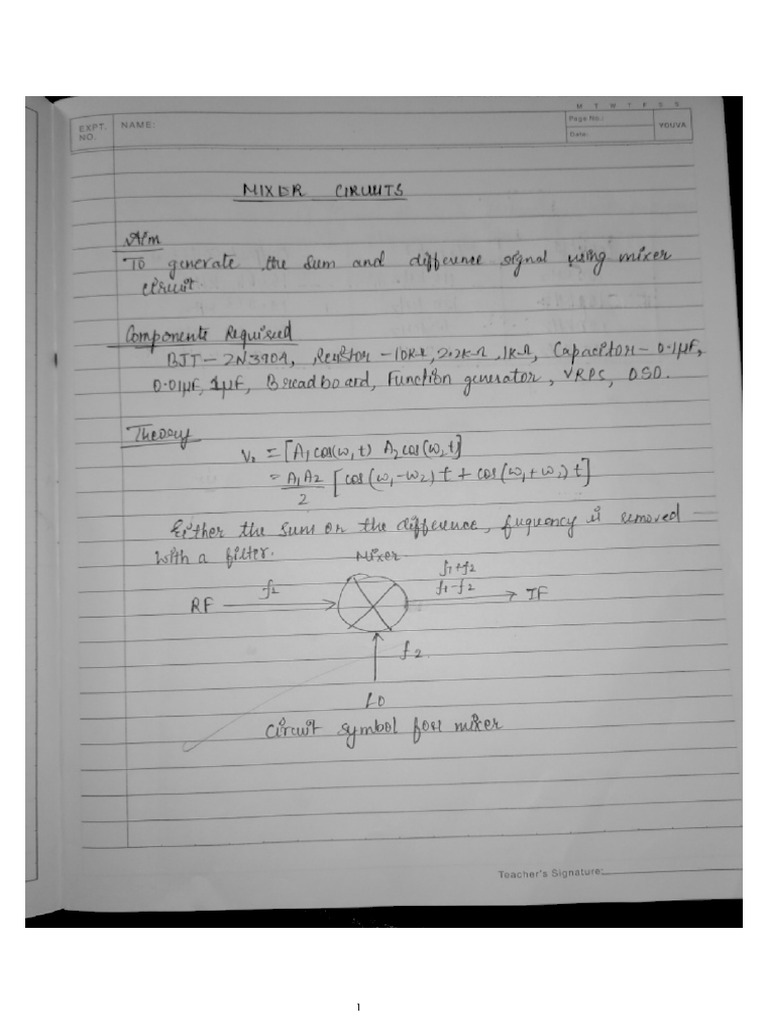 M T W T F S S
EXPT. NO.
NAME:
Page No.:
Date:
YOUVA
MIXER CIRUITS
Aim
To generate the sum and difference signal using mixer
circuit
Components Required
BJT - 2N3904, Resistor - 10KΩ, 2.2KΩ, 1KΩ, Capacitor - 0.1μF,
0.01μF, 1μF, Breadboard, Function generator, VRPS, DSO.
Theory
V₀ = [A₁cos(ω₁t) A₂cos(ω₂t)]
= A₁A₂/2 [cos(ω₁-ω₂)t + cos(ω₁+ω₂)t]
Either the sum or the difference, fuquency is removed
with a filter.
Mixer
f₁+f₂
f₁-f₂
f₂
RF
IF
f₂
LO
Circuit symbol for mixer
Teacher's Signature:
1